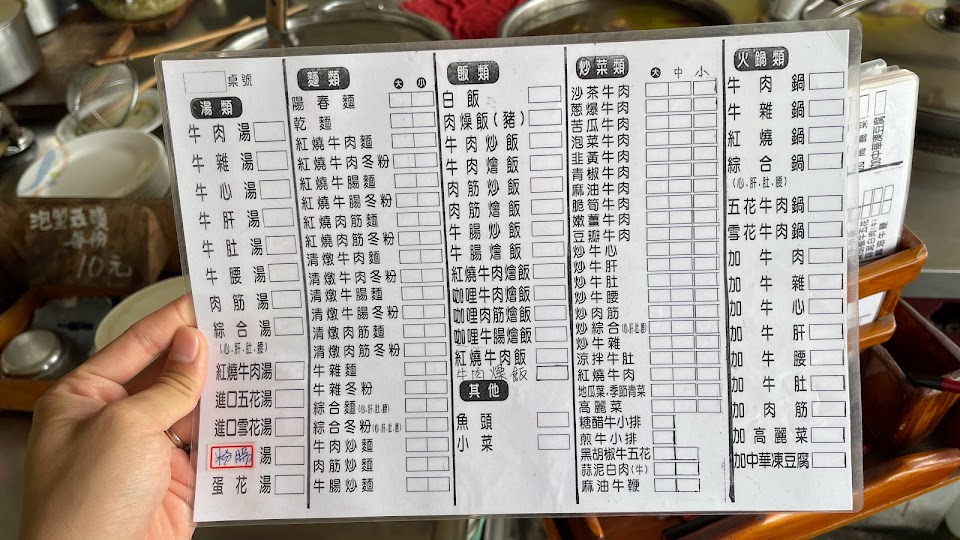 桌號
湯類
牛肉湯
牛雜湯
牛心湯
牛肝湯
牛肚湯
牛腰湯
肉筋湯
綜合湯
(心.肝.肚.腰)
紅燒牛肉湯
進口五花湯
進口雪花湯
粉腸湯
蛋花湯
麵類 大 小
陽春麵
乾麵
紅燒牛肉麵
紅燒牛肉冬粉
紅燒牛腸麵
紅燒牛腸冬粉
紅燒肉筋麵
紅燒肉筋冬粉
清燉牛肉麵
清燉牛肉冬粉
清燉牛腸麵
清燉牛腸冬粉
清燉肉筋麵
清燉肉筋冬粉
牛雜麵
牛雜冬粉
綜合麵(心.肝.肚.腰)
綜合冬粉(心.肝.肚.腰)
牛肉炒麵
肉筋炒麵
牛腸炒麵
飯類
白飯
肉燥飯(豬)
牛肉炒飯
牛肉燴飯
肉筋炒飯
肉筋燴飯
牛腸炒飯
牛腸燴飯
紅燒牛肉燴飯
咖哩牛肉燴飯
咖哩肉筋燴飯
咖哩牛腸燴飯
紅燒牛肉飯
牛肉燥飯
其他
魚頭
小菜
炒菜類 大 中 小
沙茶牛肉
蔥爆牛肉
苦瓜牛肉
泡菜牛肉
韭黃牛肉
青椒牛肉
麻油牛肉
脆筍牛肉
嫩薑牛肉
豆瓣牛肉
炒牛心
炒牛肝
炒牛肚
炒牛腰
炒肉筋
炒綜合(心.肝.肚.腰)
炒牛雜
涼拌牛肚
紅燒牛肉
地瓜葉.季節青菜
高麗菜
糖醋牛小排
煎牛小排
黑胡椒牛五花
蒜泥白肉(牛)
麻油牛鞭
火鍋類
牛肉鍋
牛雜鍋
紅燒鍋
綜合鍋
(心.肝.肚.腰)
五花牛肉鍋
雪花牛肉鍋
加牛肉
加牛雜
加牛心
加牛肝
加牛腰
加牛肚
加肉筋
加高麗菜
加中華凍豆腐
加中華凍豆腐
10元